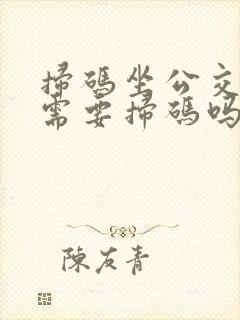 掃碼坐公交
需要掃碼嗎
陳友青